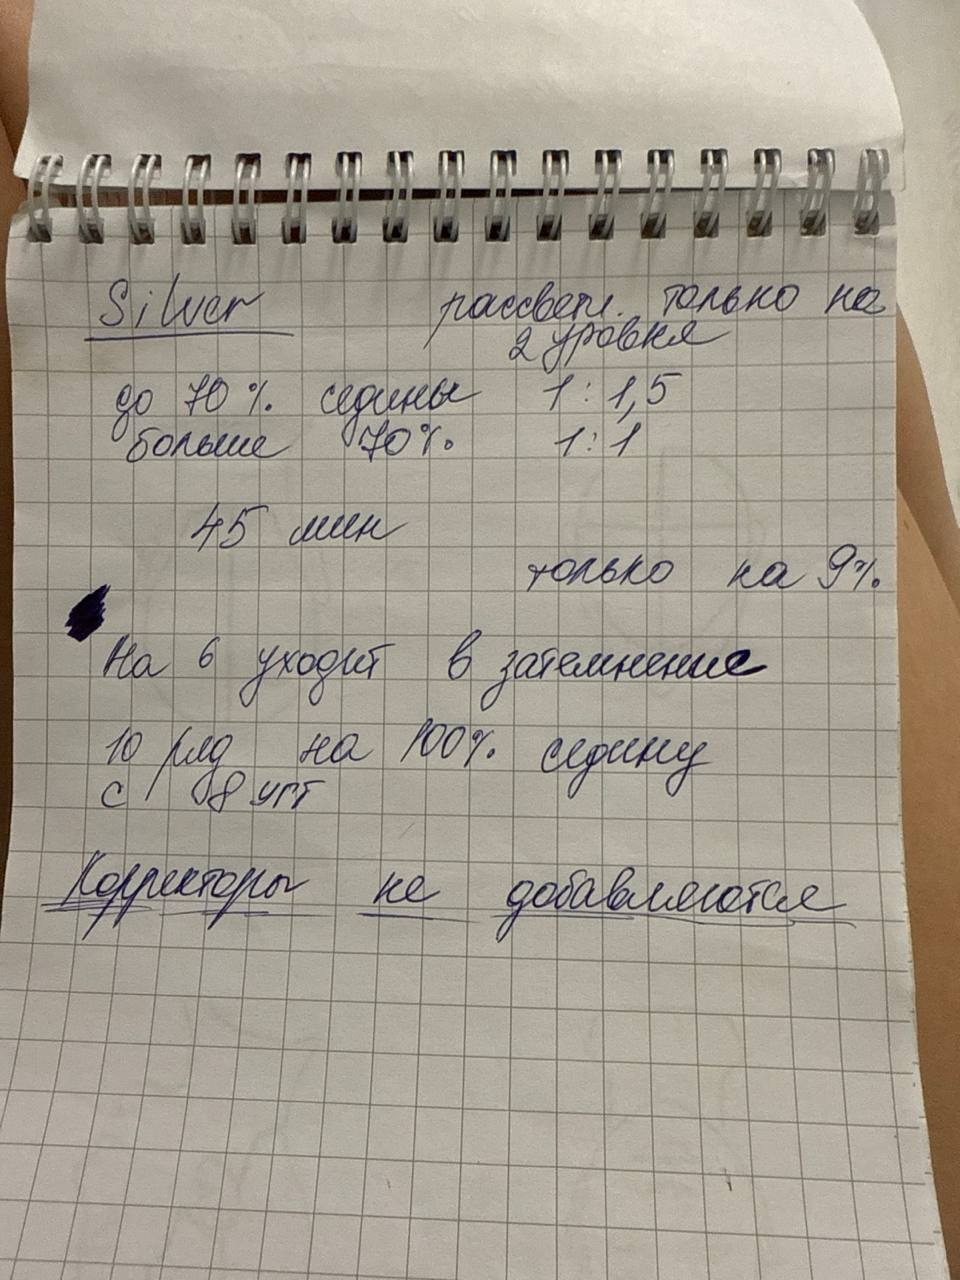 Silver
рассветл. только на
2 уровня
до 70% седины 1:1,5
больше 70% 1:1
45 мин
только на 9%
На 6 уходит в затемнение
10 ряд на 100% седину
с 8 угт
Корректоры не добавляются